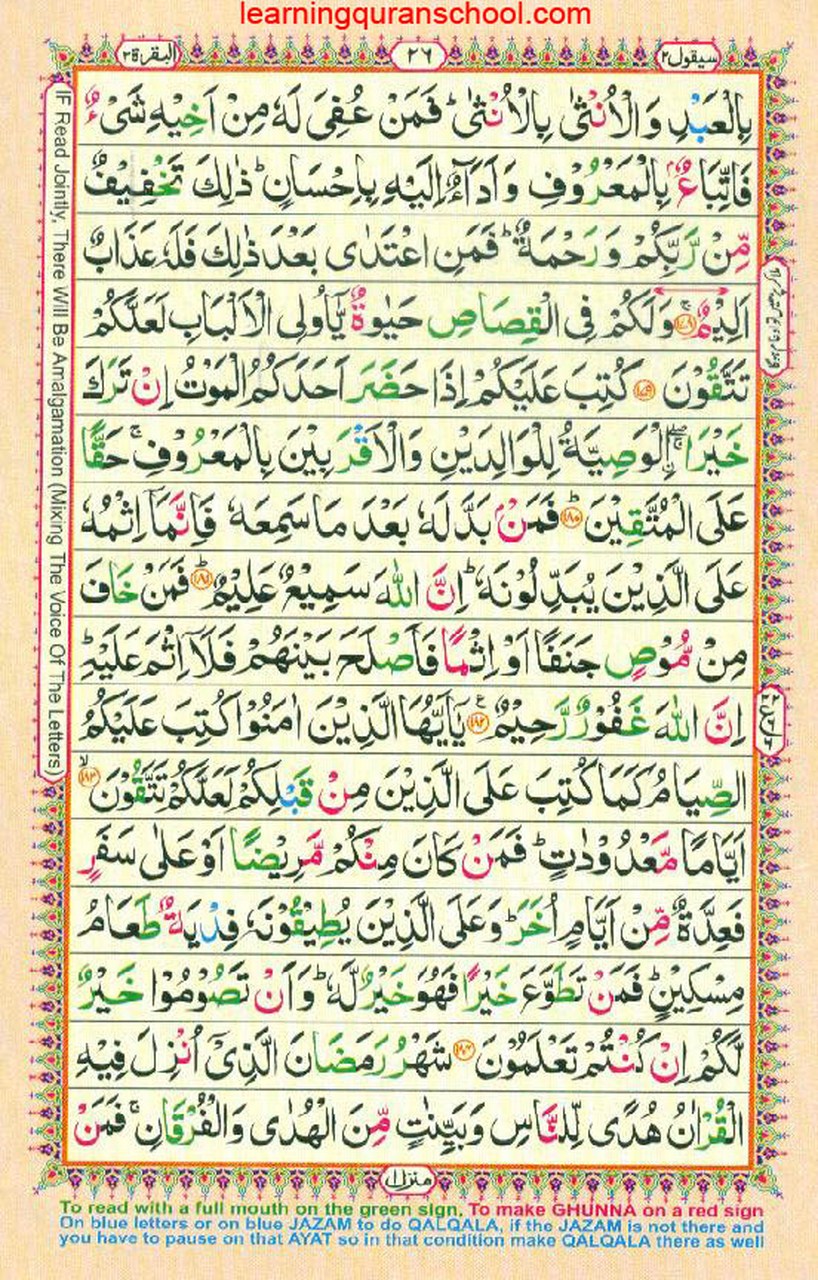 learningquranschool.com
سيقول٢
٢٦
البقرة٢
بِالْعَبْدِ وَالْاُنْثٰى بِالْاُنْثٰىؕ فَمَنْ عُفِىَ لَهٗ مِنْ اَخِيْهِ شَىْءٌ
فَاتِّبَاعٌۢ بِالْمَعْرُوْفِ وَاَدَآءٌ اِلَيْهِ بِاِحْسَانٍؕ ذٰلِكَ تَخْفِيْفٌ
مِّنْ رَّبِّكُمْ وَرَحْمَةٌؕ فَمَنِ اعْتَدٰى بَعْدَ ذٰلِكَ فَلَهٗ عَذَابٌ
اَلِيْمٌۚ‏﴿۱۷۸﴾ وَلَكُمْ فِى الْقِصَاصِ حَيٰوةٌ يّٰٓاُولِى الْاَلْبَابِ لَعَلَّكُمْ
تَتَّقُوْنَ ﴿۱۷۹﴾ كُتِبَ عَلَيْكُمْ اِذَا حَضَرَ اَحَدَكُمُ الْمَوْتُ اِنْ تَرَكَ
خَيْرَا ۖۚ اۨلْوَصِيَّةُ لِلْوَالِدَيْنِ وَالْاَقْرَبِيْنَ بِالْمَعْرُوْفِۚ حَقًّا
عَلَى الْمُتَّقِيْنَؕ ﴿۱۸۰﴾ فَمَنْۢ بَدَّلَهٗ بَعْدَ مَا سَمِعَهٗ فَاِنَّمَآ اِثْمُهٗ
عَلَى الَّذِيْنَ يُبَدِّلُوْنَهٗؕ اِنَّ اللّٰهَ سَمِيْعٌ عَلِيْمٌؕ ﴿۱۸۱﴾ فَمَنْ خَافَ
مِنْ مُّوْصٍ جَنَفًا اَوْ اِثْمًا فَاَصْلَحَ بَيْنَهُمْ فَلَاۤ اِثْمَ عَلَيْهِؕ
اِنَّ اللّٰهَ غَفُوْرٌ رَّحِيْمٌ ﴿۱۸۲﴾ يٰٓاَيُّهَا الَّذِيْنَ اٰمَنُوْا كُتِبَ عَلَيْكُمُ
الصِّيَامُ كَمَا كُتِبَ عَلَى الَّذِيْنَ مِنْ قَبْلِكُمْ لَعَلَّكُمْ تَتَّقُوْنَۙ ﴿۱۸۳﴾
اَيَّامًا مَّعْدُوْدٰتٍؕ فَمَنْ كَانَ مِنْكُمْ مَّرِيْضًا اَوْ عَلٰى سَفَرٍ
فَعِدَّةٌ مِّنْ اَيَّامٍ اُخَرَؕ وَعَلَى الَّذِيْنَ يُطِيْقُوْنَهٗ فِدْيَةٌ طَعَامُ
مِسْكِيْنٍؕ فَمَنْ تَطَوَّعَ خَيْرًا فَهُوَ خَيْرٌ لَّهٗؕ وَاَنْ تَصُوْمُوْا خَيْرٌ
لَّكُمْ اِنْ كُنْتُمْ تَعْلَمُوْنَ ﴿۱۸۴﴾ شَهْرُ رَمَضَانَ الَّذِىْٓ اُنْزِلَ فِيْهِ
الْقُرْاٰنُ هُدًى لِّلنَّاسِ وَبَيِّنٰتٍ مِّنَ الْهُدٰى وَالْفُرْقَانِۚ فَمَنْ
IF Read Jointly, There Will Be Amalgamation (Mixing The Voice Of The Letters)
منزل١
To read with a full mouth on the green sign. To make GHUNNA on a red sign
On blue letters or on blue JAZAM to do QALQALA, if the JAZAM is not there and
you have to pause on that AYAT so in that condition make QALQALA there as well